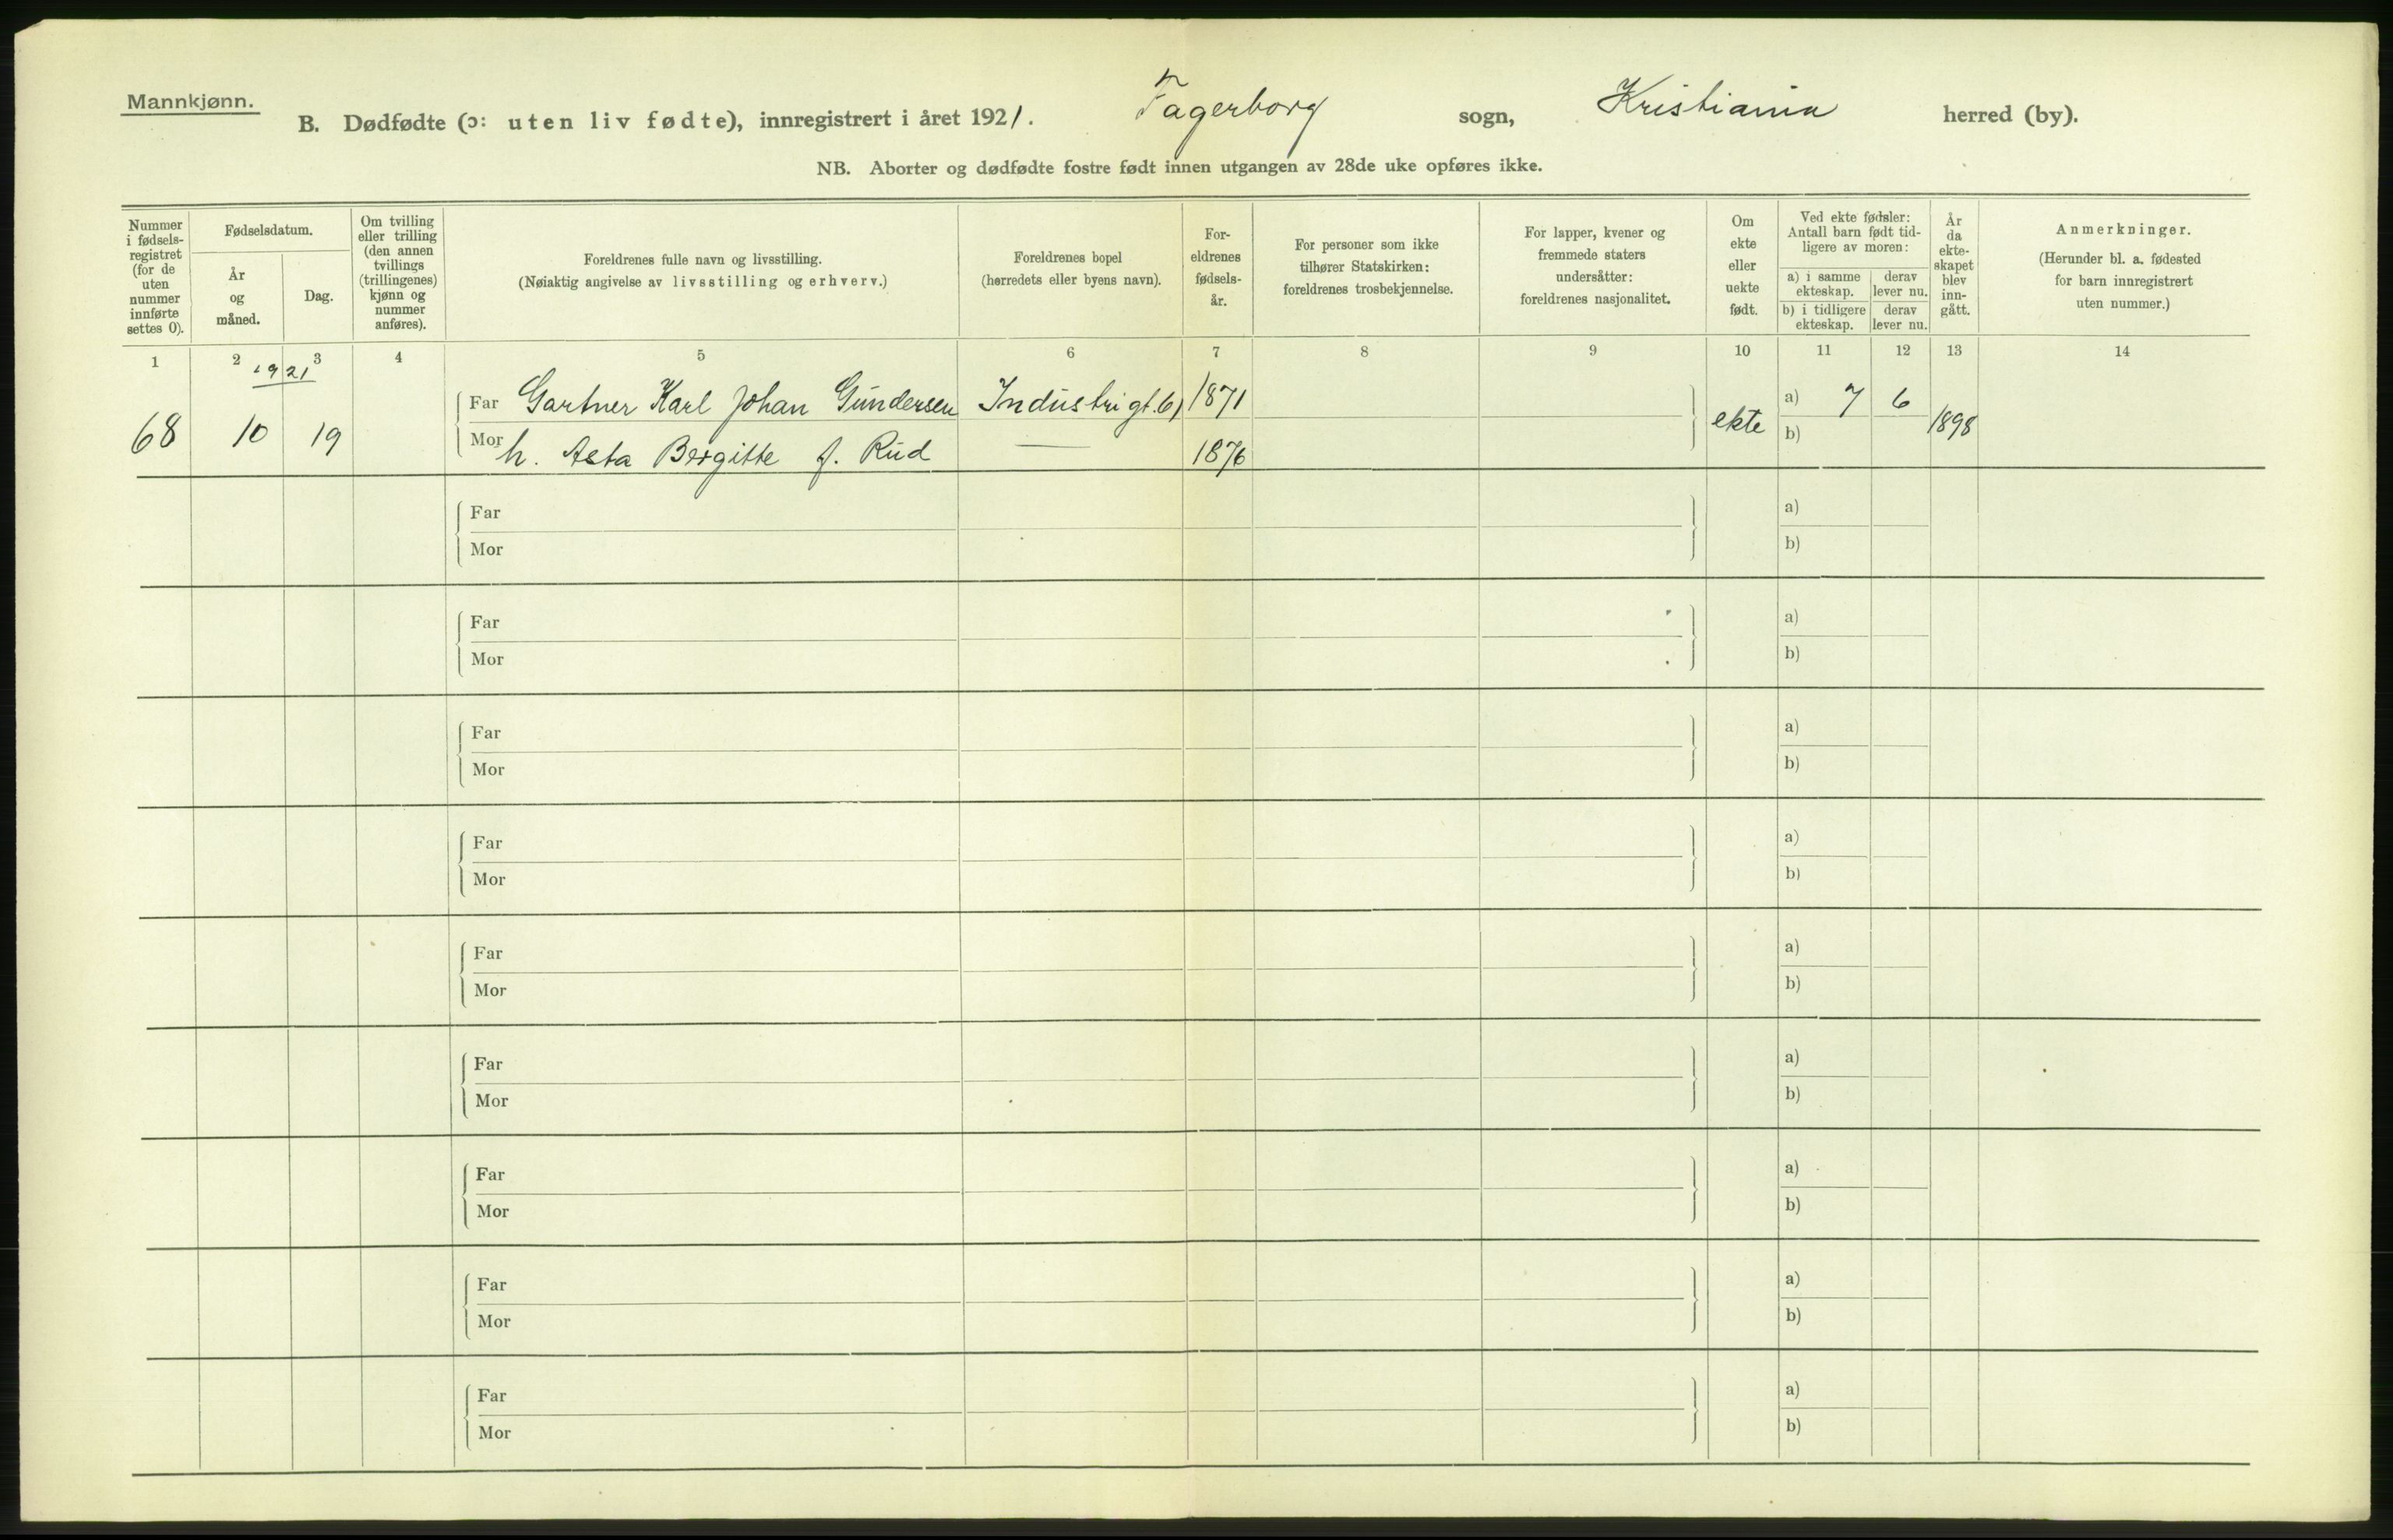 Mannkjønn.
B. Dødfødte (ɔ: uten liv fødte), innregistrert i året 1921. Fagerborg sogn, Kristiania herred (by).
NB. Aborter og dødfødte fostre født innen utgangen av 28de uke opføres ikke.
Nummer
i fødsels-
registret
(for de
uten
nummer
innførte
settes 0).
Fødselsdatum.
År
og
måned.
Dag.
Om tvilling
eller trilling
(den annen
tvillings
(trillingenes)
kjønn og
nummer
anføres).
Foreldrenes fulle navn og livsstilling.
(Nøiaktig angivelse av livsstilling og erhverv.)
Foreldrenes bopel
(herredets eller byens navn).
For-
eldrenes
fødsels-
år.
For personer som ikke
tilhører Statskirken:
foreldrenes trosbekjennelse.
For lapper, kvener og
fremmede staters
undersåtter:
foreldrenes nasjonalitet.
Om
ekte
eller
uekte
født.
Ved ekte fødsler:
Antall barn født tid-
ligere av moren:
a) i samme
ekteskap.
derav
lever nu.
b) i tidligere
ekteskap.
derav
lever nu.
År
da
ekte-
skapet
blev
inn-
gått.
Anmerkninger.
(Herunder bl. a. fødested
for barn innregistrert
uten nummer.)
1 2 3 4 5 6 7 8 9 10 11 12 13 14
1921
68 10 19
Far Gartner Karl Johan Gundersen Industrigt. 61 1871
Mor h. Asta Bergitte f. Rud — 1876
ekte
a) 7 6
b)
1898
Far a)
Mor b)
Far a)
Mor b)
Far a)
Mor b)
Far a)
Mor b)
Far a)
Mor b)
Far a)
Mor b)
Far a)
Mor b)
Far a)
Mor b)
Far a)
Mor b)